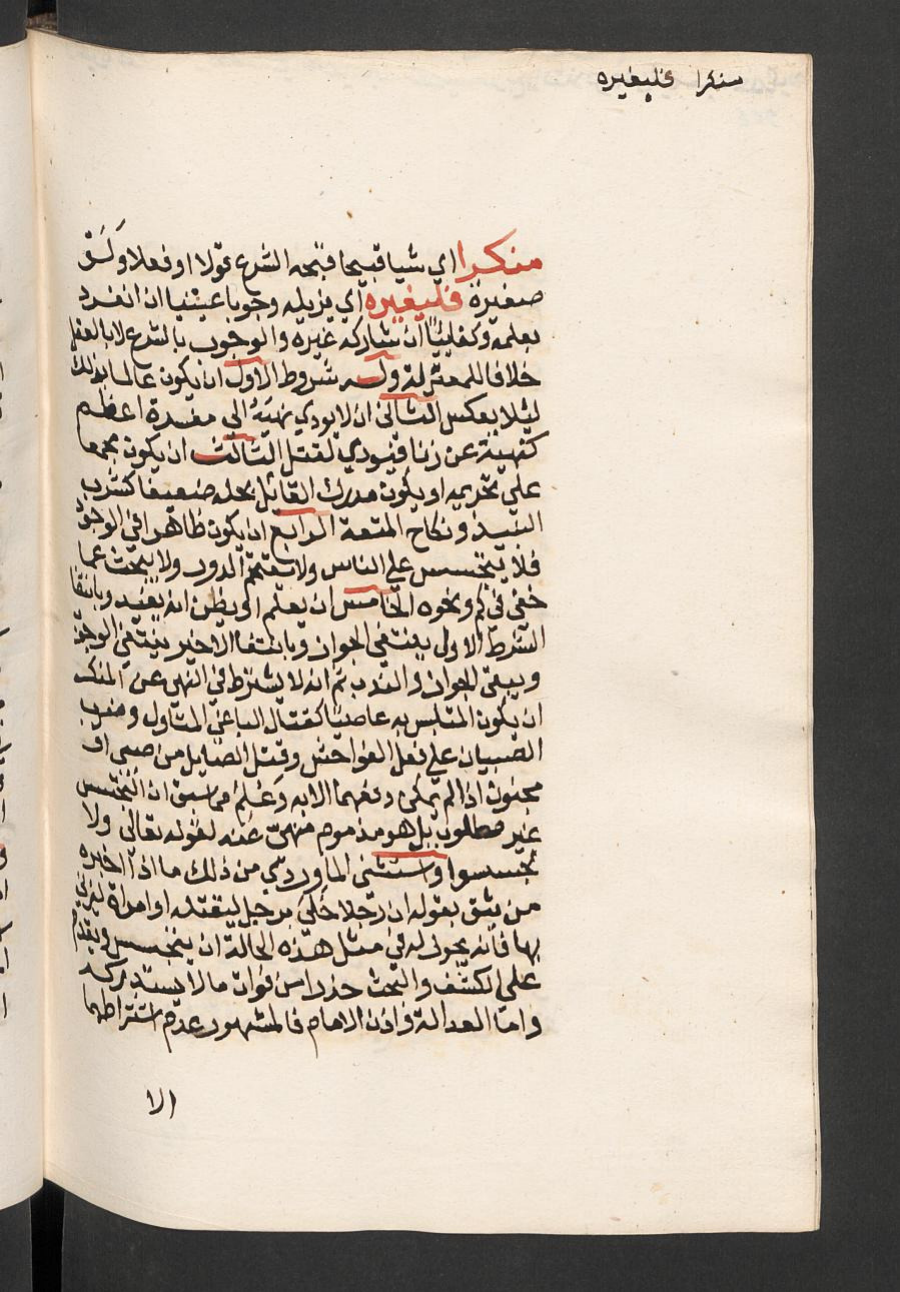 منكرا فليغيره
منكرا اي شيا قبيحا قبحه الشرع قولا او فعلا ولو
صغيرة فليغيره اي يزيله وجوبا عينيا ان انفرد
بعلمه وكفائيا ان شاركه غيره والوجوب بالشرع لا بالعقل
خلافا للمعتزلة وله شروط الاول ان يكون عالما بذلك
ليلا يعكس الثاني ان لا يودي نهيه الي مفسدة اعظم
كنهيه عن زنا فيودي لقتل الثالث ان يكون مجمعا
علي تحريمه او يكون مدرك القائل بحله ضعيفا كشرب
النبيذ ونكاح المتعة الرابع ان يكون ظاهرا في الوجود
فلا يتجسس علي الناس ولا يقتحم الدور ولا يبحث عما
خفي في كم ونحوه الخامس ان يعلم او يظن انه يفيد وبانتفا
الشرط الاول ينتفي الجواز وبانتفا الاخير ينتفي الوجوب
ويبقي الجواز والندب ثم انه لا يشترط في النهي عن المنكر
ان يكون المتلبس به عاصيا كقتال الباغي المتاول وضرب
الصبيان علي فعل الفواحش وقتل الصايل من صبي او
مجنون اذا لم يمكن دفعهما الا به وعلم مما سبق ان التجسس
غير مطلوب بل هو مذموم منهي عنه لقوله تعالي ولا
تجسسوا واستثني الماوردي من ذلك ما اذا اخبره
من يثق بقوله ان رجلا خلي برجل ليقتله او امراة ليزني
بها فانه يجوز له في مثل هذه الحالة ان يتجسس ويقدم
علي الكشف والبحث حذرا من فوات ما لا يستدركه
واما العدالة واذن الامام فالمشهور عدم اشتراطهما
الا